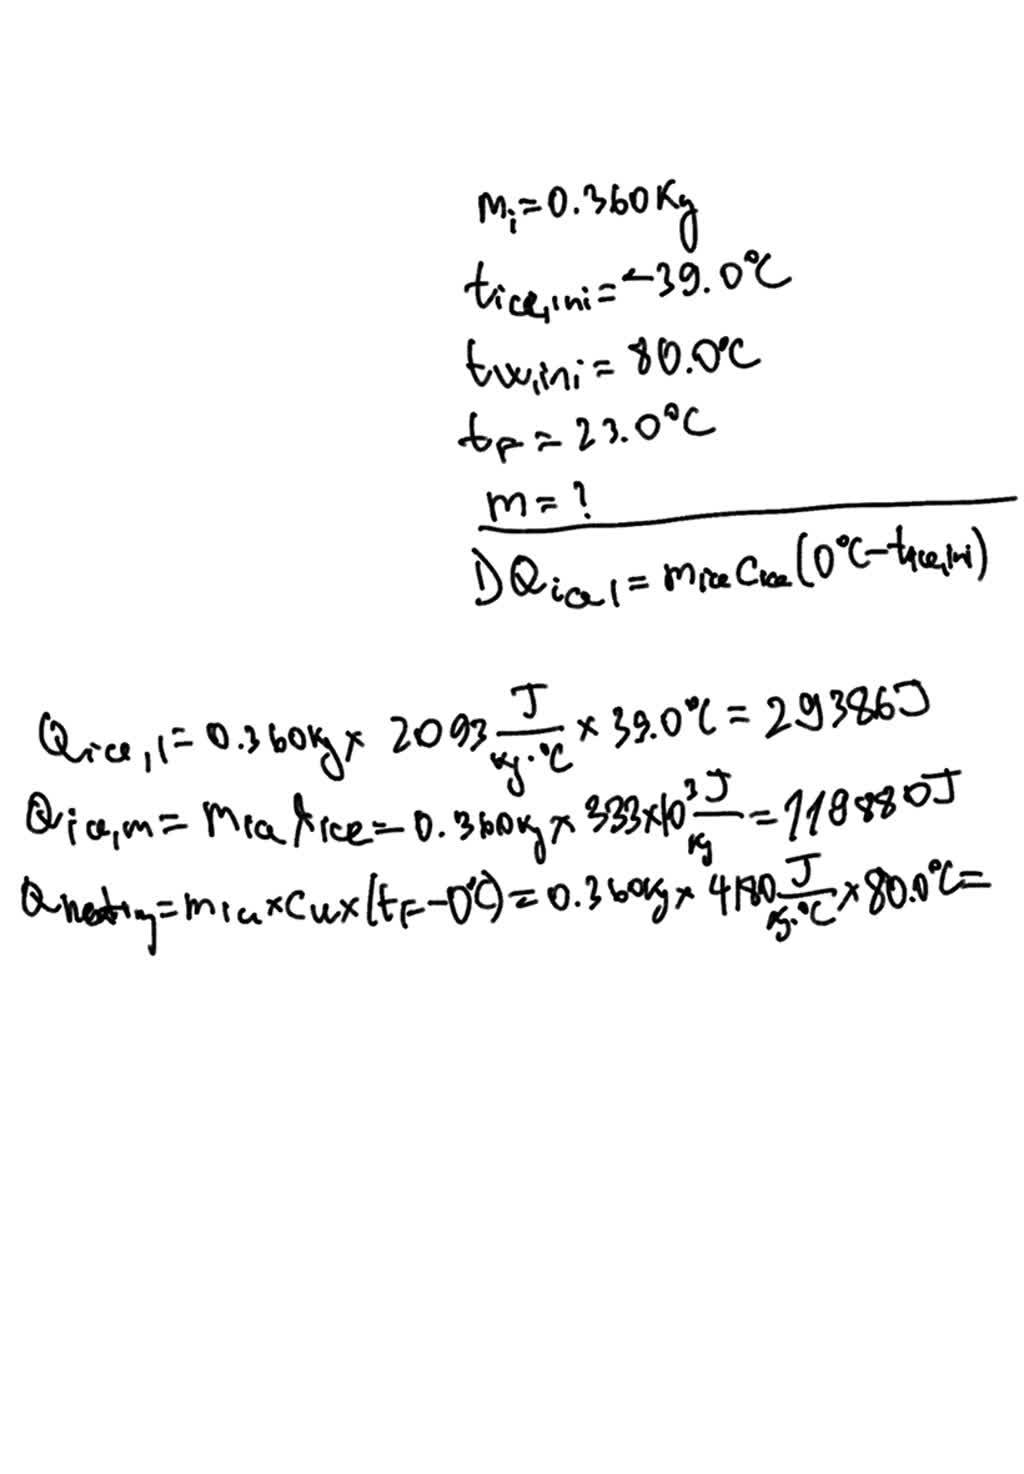 mi=0.360Kg
tice,ini=-39.0°C
tw,ini=80.0°C
tF=23.0°C
m=?
1) Qice1=mice Cice(0°C-tice,ini)
Qice,1=0.360kg×2093 J/kg·°C×39.0°C=29386J
Qice,m=mice λice=0.360kg×333×10³ J/kg=119880J
Qheating=mice×Cw×(tF-0°C)=0.360kg×4180 J/kg·°C×80.0°C=